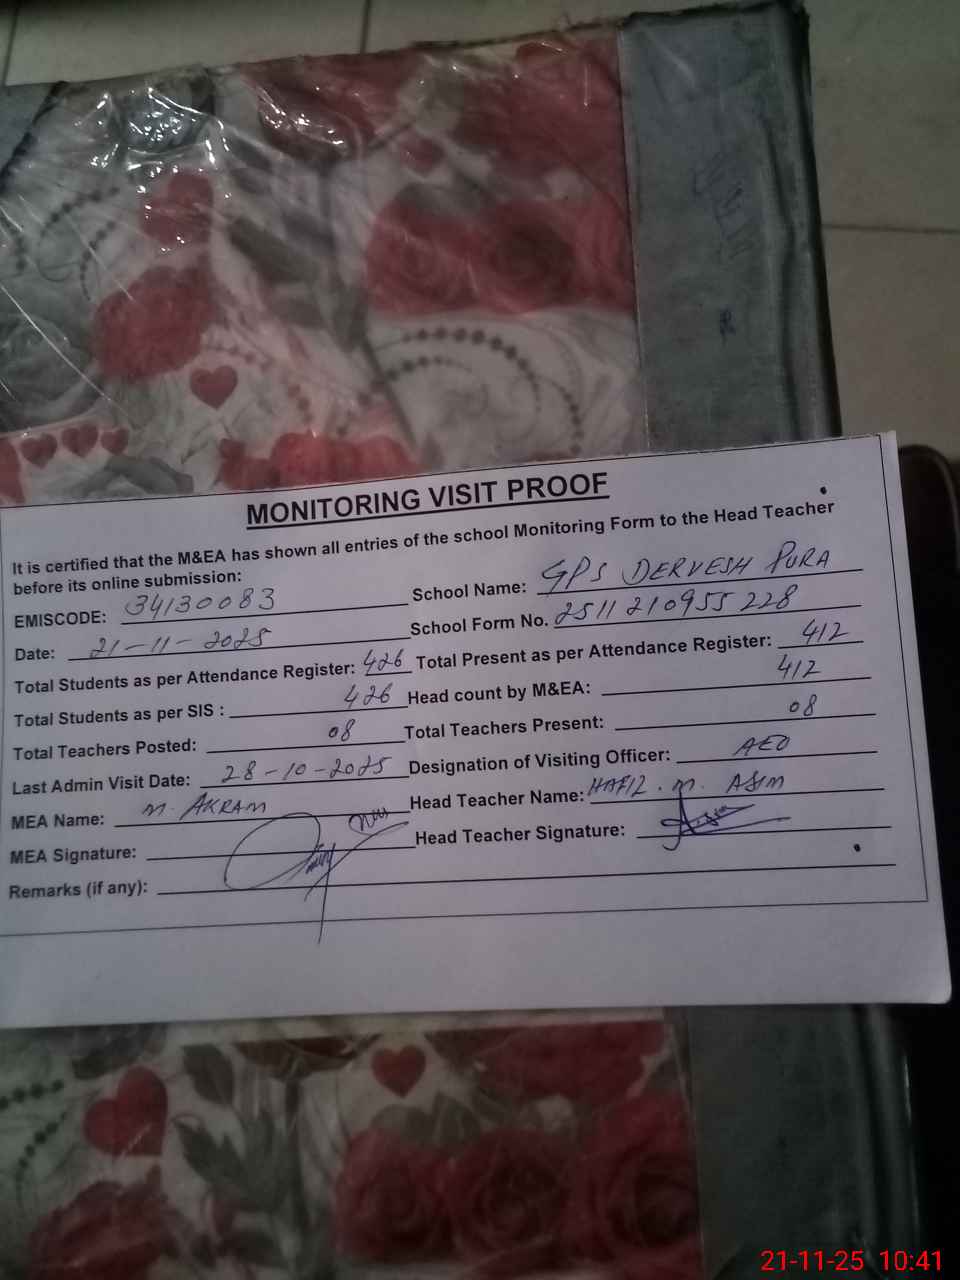 MONITORING VISIT PROOF
It is certified that the M&EA has shown all entries of the school Monitoring Form to the Head Teacher
before its online submission:
EMISCODE: 34130083 School Name: GPS DERVESH PURA
Date: 21-11-2025 School Form No. 2511210955228
Total Students as per Attendance Register: 426 Total Present as per Attendance Register: 412
Total Students as per SIS : 426 Head count by M&EA: 412
Total Teachers Posted: 08 Total Teachers Present: 08
Last Admin Visit Date: 28-10-2025 Designation of Visiting Officer: AEO
MEA Name: M. AKRAM Head Teacher Name: HAFIZ. M. ASIM
MEA Signature: Head Teacher Signature:
Remarks (if any):
21-11-25 10:41